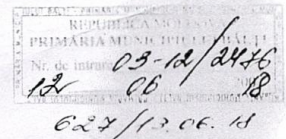 REPUBLICA MOLDOVA
PRIMĂRIA MUNICIPIULUI BĂLŢI
Nr. de intrare 03-12/2476
12 06 18
627/13.06.18